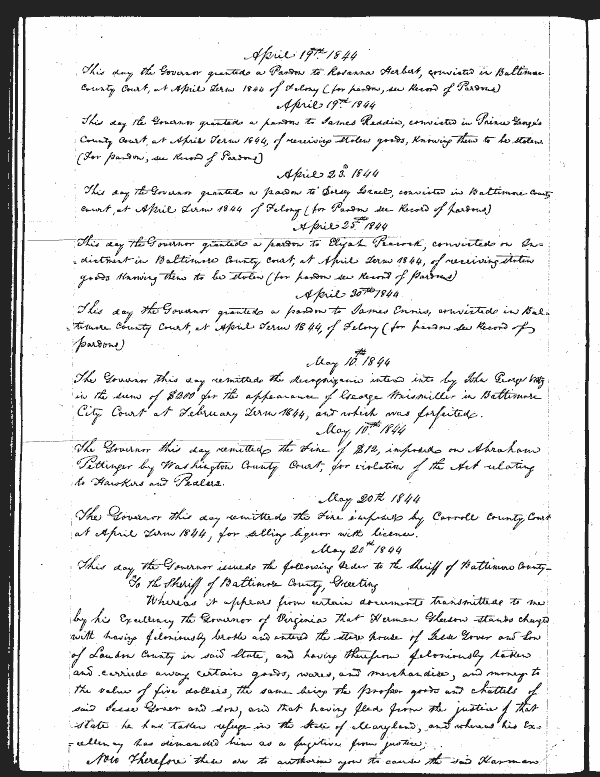 April 19th 1844
This day the Governor granted a Pardon to Rosanna Herbert, convicted in Baltimore
County Court, at April Term 1844 of Felony (for pardon, see Record of Pardons)
April 19th 1844
This day the Governor granted a pardon to James Reddin, convicted in Prince George's
County Court, at April Term 1844, of receiving stolen goods, knowing them to be stolen
(For pardon, see Record of Pardons)
April 23d 1844
This day the Governor granted a pardon to Dorsey Israel, convicted in Baltimore County
court, at April Term 1844 of Felony (for Pardon see Record of pardons)
April 25th 1844
This day the Governor granted a pardon to Elijah Peacock, convicted on In-
dictment in Baltimore County Court, at April Term 1844, of receiving stolen
goods knowing them to be stolen (for pardon see Record of Pardons)
April 30th 1844
This day the Governor granted a pardon to James Ennis, convicted in Bal-
timore County Court, at April Term 1844, of Felony (for pardon see Record of
pardons)
May 10th 1844
The Governor this day remitted the Recognizance entered into by John George
in the sum of $200 for the appearance of George Waismiller in Baltimore
City Court at February Term 1844, and which was forfeited.
May 10th 1844
The Governor this day remitted the Fine of $12, imposed on Abraham
Pettinger by Washington County Court, for violation of the Act relating
to Hawkers and Pedlers.
May 20th 1844
The Governor this day remitted the Fine imposed by Carroll County Court
at April Term 1844, for selling liquor with license.
May 20th 1844
This day the Governor issued the following order to the Sheriff of Baltimore County-
To the Sheriff of Baltimore County, Greeting
Whereas it appears from certain documents transmitted to me
by his Excellency the Governor of Virginia that Herman stands charged
with having feloniously broke and entered the store house of Jesse Gover and Son
of Loudon County in said State, and having therefrom feloniously taken
and carried away certain goods, wares, and merchandise, and money to
the value of five dollars, the same being the proper goods and chattels of
said Jesse Gover and son, and that having fled from the justice of that
State he has taken refuge in the State of Maryland, and whereas his Ex-
cellency has demanded him as a fugitive from justice;
Now Therefore these are to authorize you to cause the said Harman